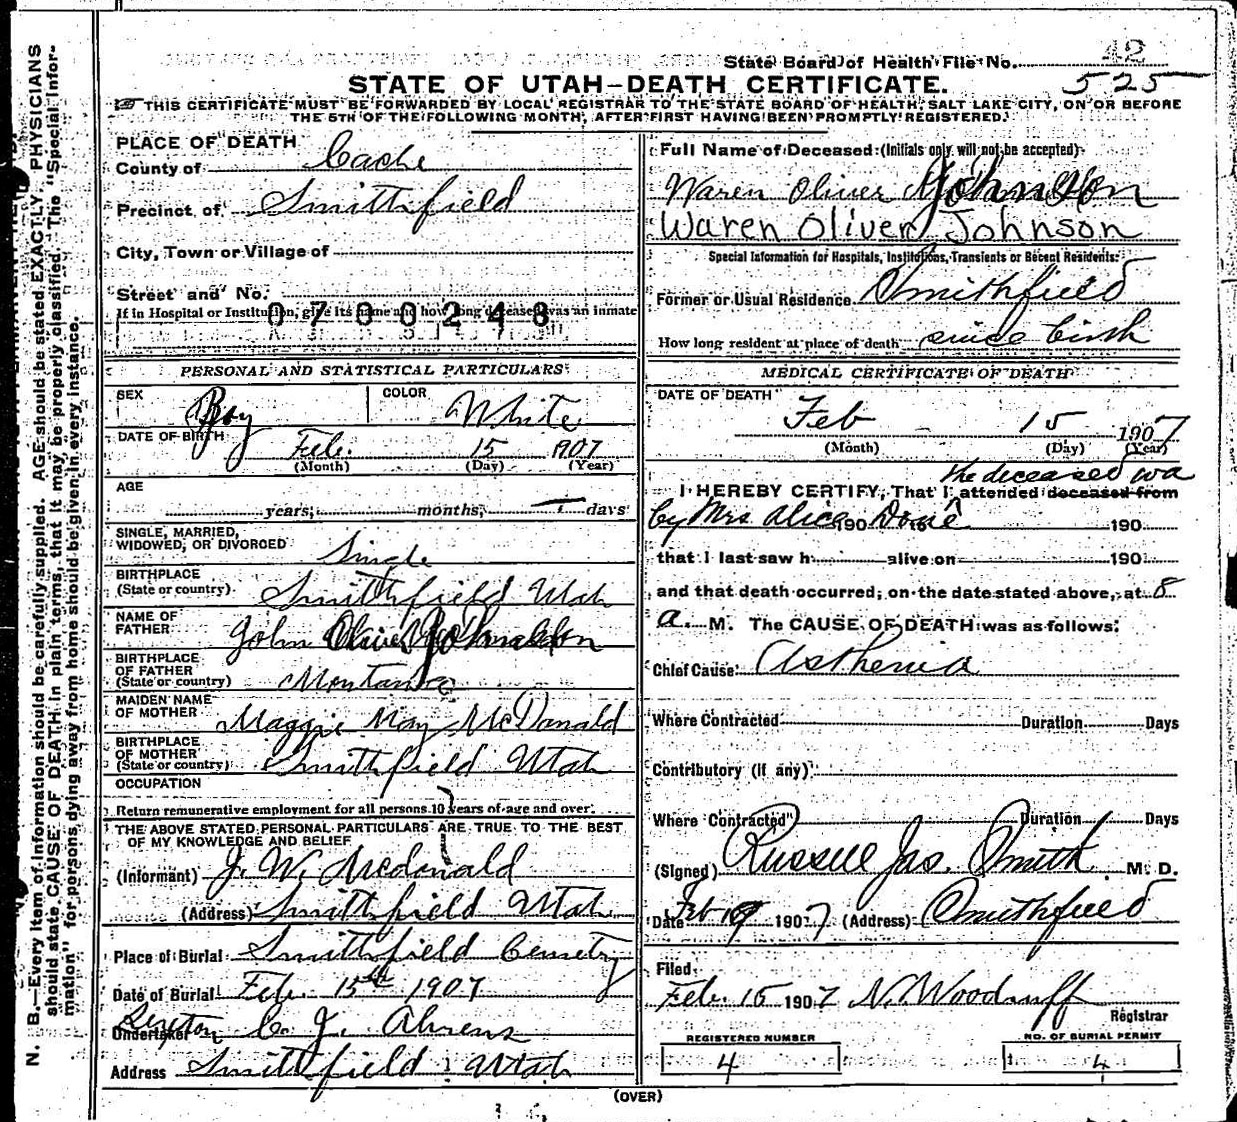 42
State Board of Health File No. 525
STATE OF UTAH—DEATH CERTIFICATE.
THIS CERTIFICATE MUST BE FORWARDED BY LOCAL REGISTRAR TO THE STATE BOARD OF HEALTH, SALT LAKE CITY, ON OR BEFORE
THE 5TH OF THE FOLLOWING MONTH, AFTER FIRST HAVING BEEN PROMPTLY REGISTERED.
PLACE OF DEATH
County of Cache
Precinct of Smithfield
City, Town or Village of
Street and No.
0700248
If in Hospital or Institution, give its name and how long deceased was an inmate
PERSONAL AND STATISTICAL PARTICULARS
SEX Boy COLOR White
DATE OF BIRTH Feb. 15 1907
(Month) (Day) (Year)
AGE
years, months, — days
SINGLE, MARRIED,
WIDOWED, OR DIVORCED Single
BIRTHPLACE
(State or country) Smithfield Utah
NAME OF
FATHER John
BIRTHPLACE
OF FATHER
(State or country) Montana
MAIDEN NAME
OF MOTHER Maggie May McDanald
BIRTHPLACE
OF MOTHER
(State or country) Smithfield Utah
OCCUPATION
Return remunerative employment for all persons 10 years of age and over.
THE ABOVE STATED PERSONAL PARTICULARS ARE TRUE TO THE BEST
OF MY KNOWLEDGE AND BELIEF
(Informant) J. W. Mcdonald
(Address) Smithfield Utah
Place of Burial Smithfield Cemetry
Date of Burial Feb. 15th 1907
Sexton
Undertaker C. J. Ahrens
Address Smithfield Utah
Full Name of Deceased: (Initials only will not be accepted)
Waren Oliver Johnson
Waren Oliver Johnson
Special Information for Hospitals, Institutions, Transients or Recent Residents:
Former or Usual Residence Smithfield
How long resident at place of death since birth
MEDICAL CERTIFICATE OF DEATH
DATE OF DEATH
Feb 15 1907
(Month) (Day) (Year)
the deceased wa
I HEREBY CERTIFY, That I attended deceased from
by Mrs Alice 190 190
that I last saw h alive on 190
and that death occurred, on the date stated above, at 8
a. M. The CAUSE OF DEATH was as follows:
Chief Cause: Asthenia
Where Contracted Duration Days
Contributory (if any)
Where Contracted Duration Days
(Signed) Russell Jas. Smith M. D.
Date Feb 19 1907 (Address) Smithfield
Filed
Feb. 15 1907 N. Woodruff
Registrar
REGISTERED NUMBER
4
NO. OF BURIAL PERMIT
4
(OVER)
N. B.—Every item of information should be carefully supplied. AGE should be stated EXACTLY. PHYSICIANS
should state CAUSE OF DEATH in plain terms, that it may be properly classified. The "Special Infor-
mation" for persons dying away from home should be given in every instance.